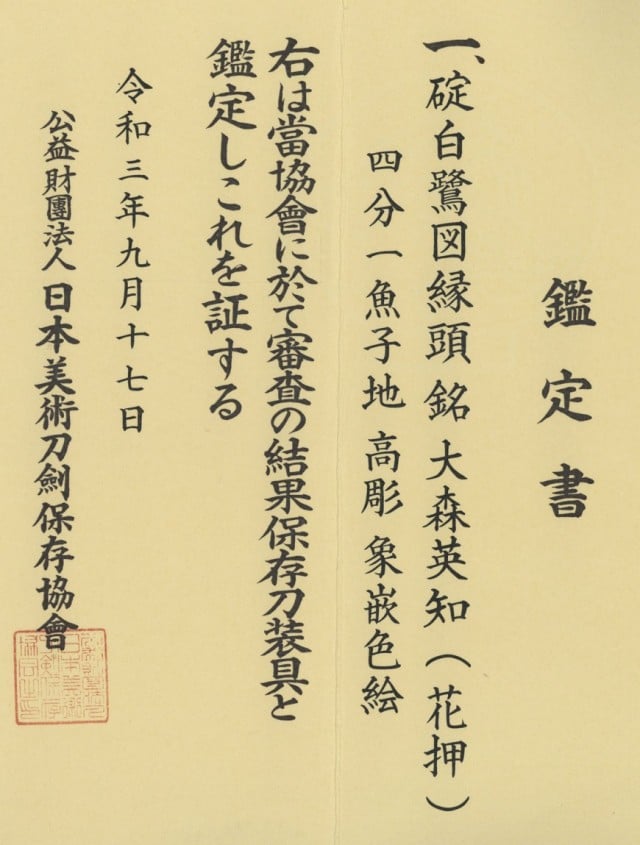 鑑定書
一、碇白鷺図縁頭 銘 大森英知（花押）
四分一魚子地 高彫 象嵌色絵
右は當協會に於て審査の結果保存刀装具と
鑑定しこれを証する
令和三年九月十七日
公益財團法人 日本美術刀劍保存協會